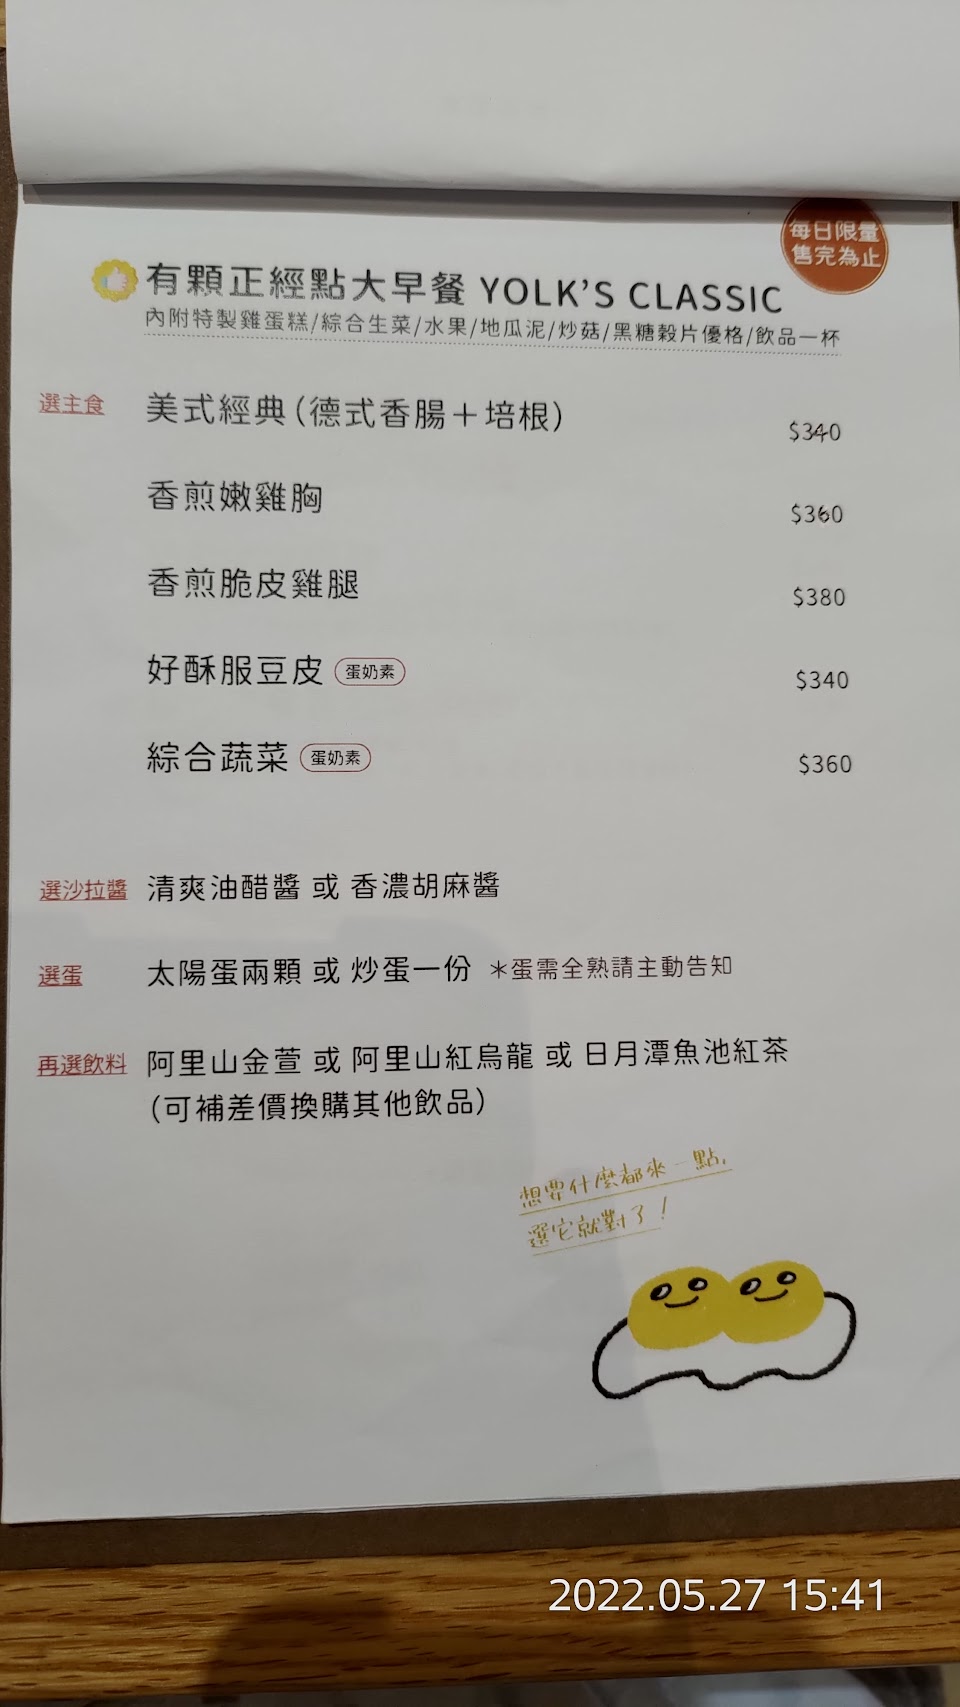 每日限量
售完為止
有顆正經點大早餐 YOLK'S CLASSIC
內附特製雞蛋糕/綜合生菜/水果/地瓜泥/炒菇/黑糖穀片優格/飲品一杯
選主食 美式經典(德式香腸＋培根) $340
香煎嫩雞胸 $360
香煎脆皮雞腿 $380
好酥服豆皮 蛋奶素 $340
綜合蔬菜 蛋奶素 $360
選沙拉醬 清爽油醋醬 或 香濃胡麻醬
選蛋 太陽蛋兩顆 或 炒蛋一份 ＊蛋需全熟請主動告知
再選飲料 阿里山金萱 或 阿里山紅烏龍 或 日月潭魚池紅茶
(可補差價換購其他飲品)
想要什麼都來一點,
選它就對了!
2022.05.27 15:41